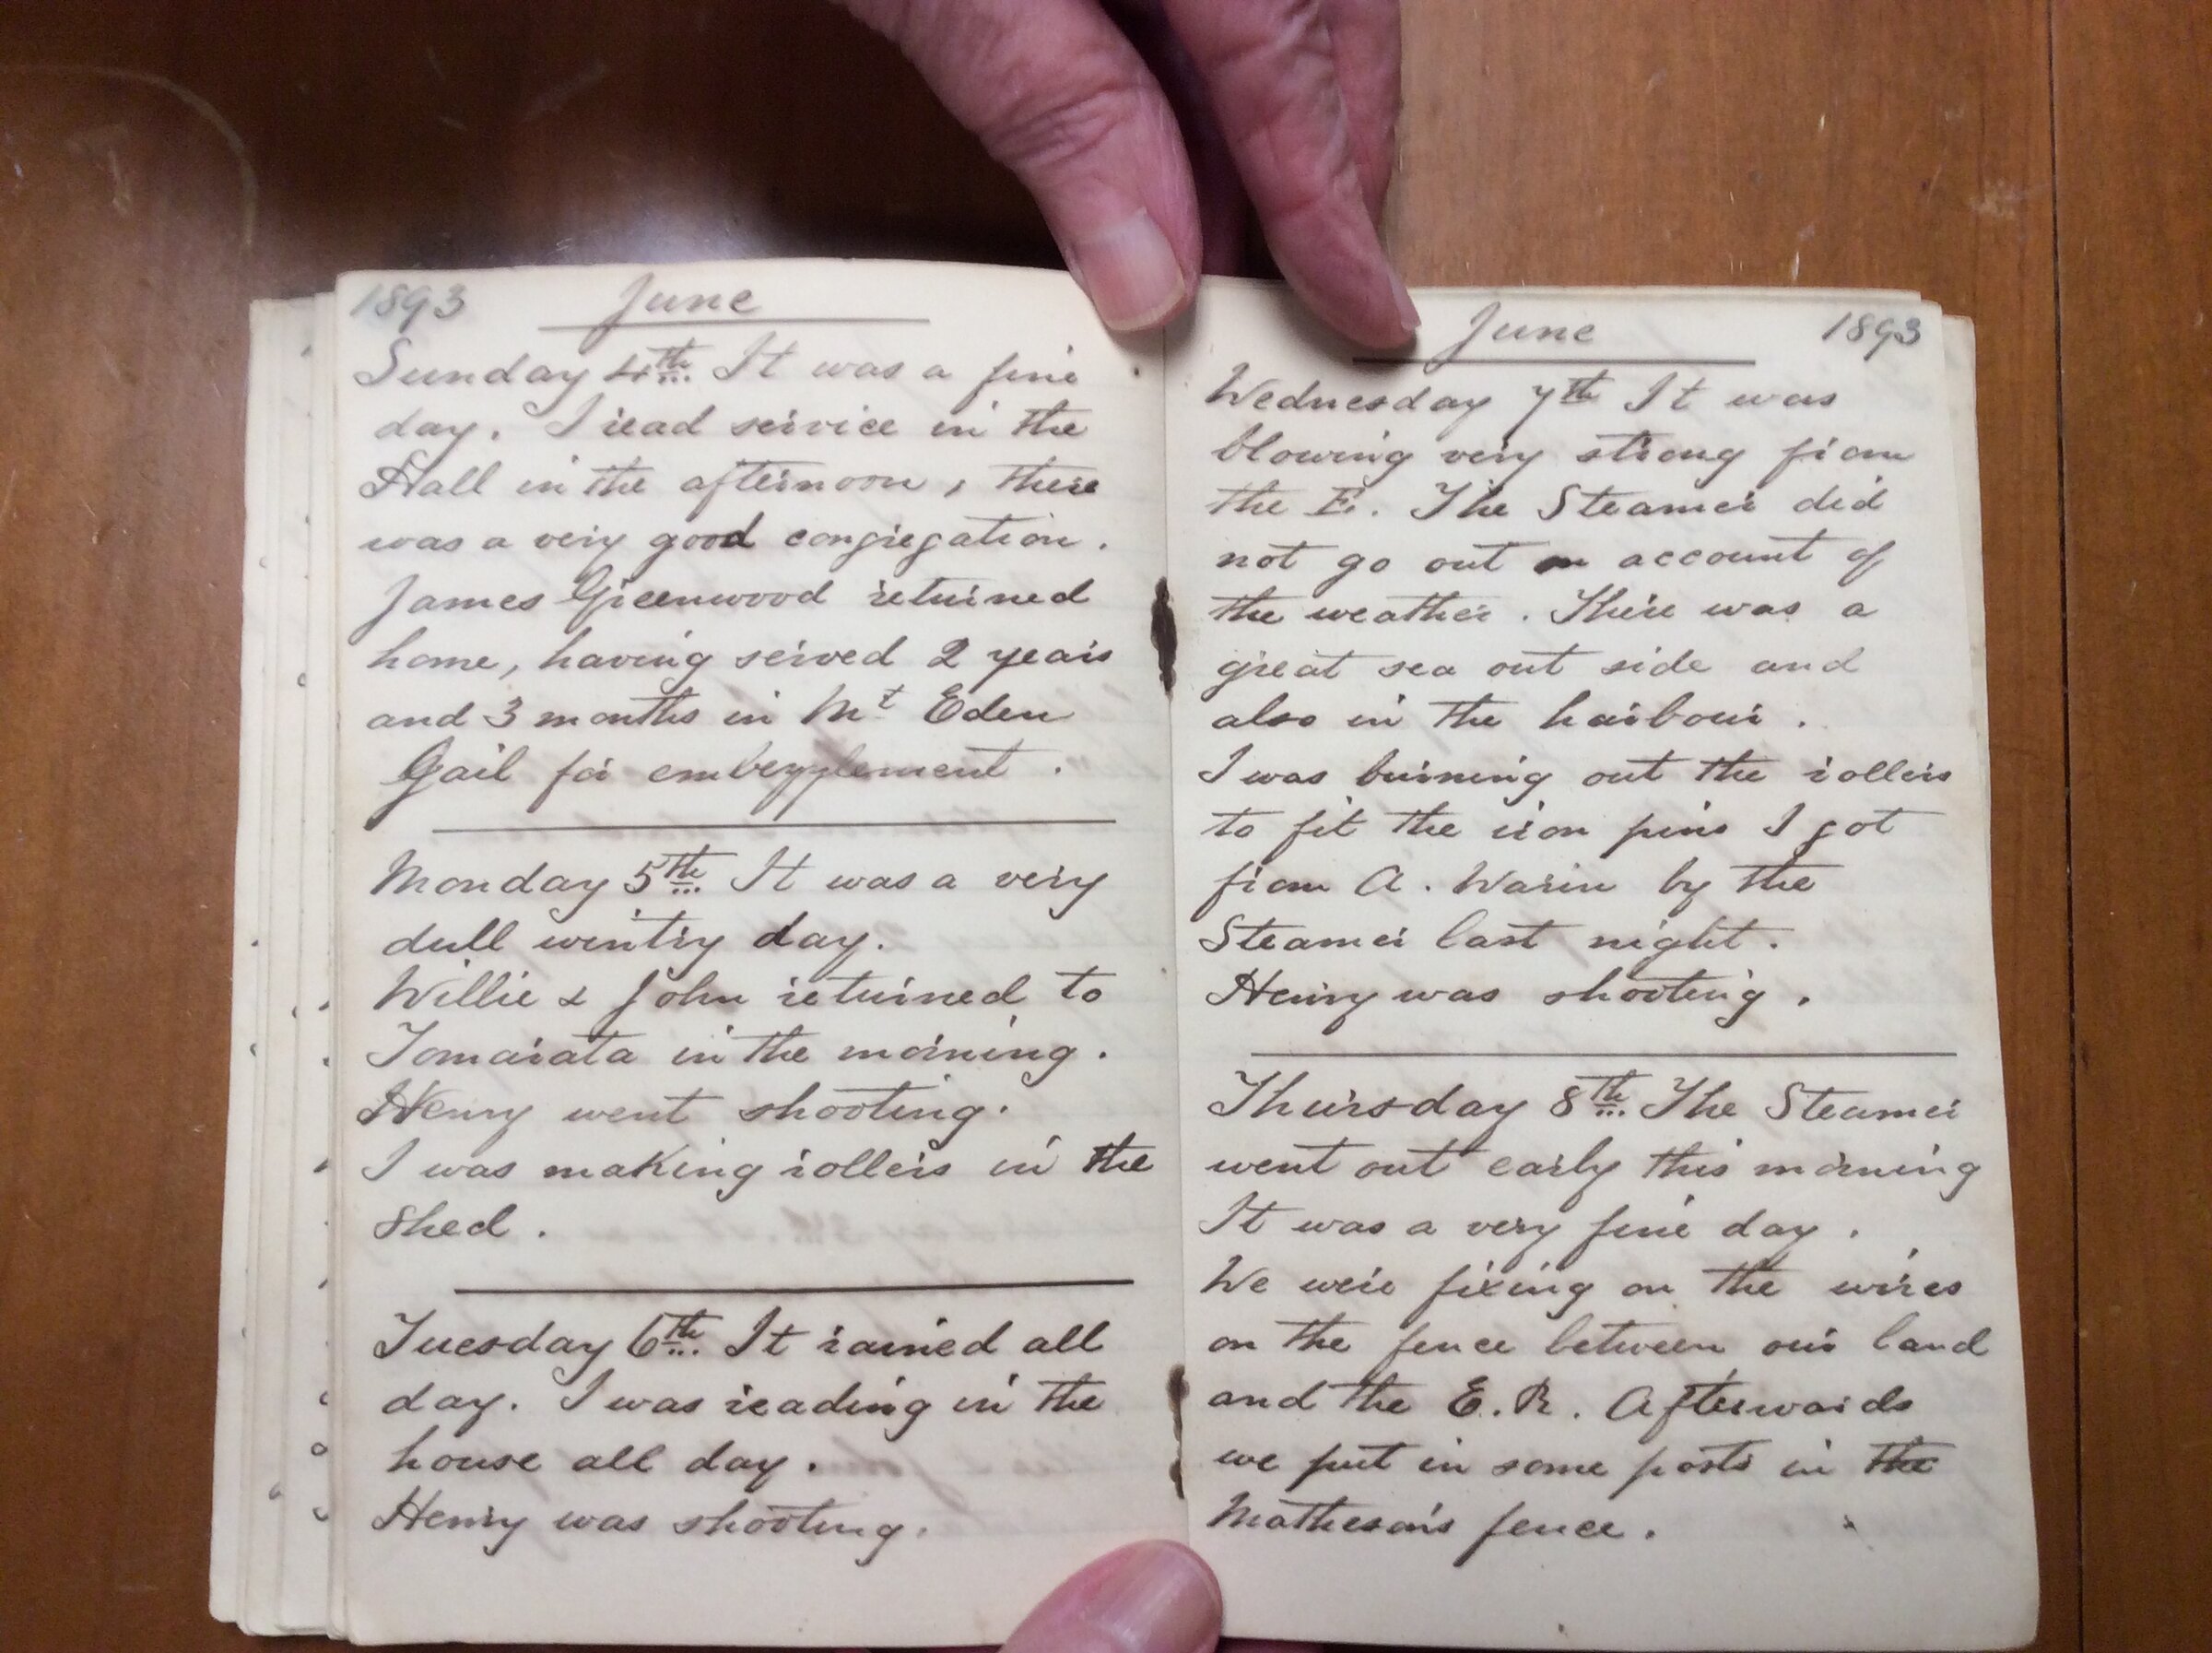 1893 June
Sunday 4th It was a fine
day. I read service in the
Hall in the afternoon, there
was a very good congregation.
James Greenwood returned
home, having served 2 years
and 3 months in Mt Eden
Gail for embezzlement.
Monday 5th It was a very
dull wintry day.
Willie & John returned to
Tomarata in the morning.
Henry went shooting.
I was making rollers in the
shed.
Tuesday 6th It rained all
day. I was reading in the
house all day.
Henry was shooting.
June 1893
Wednesday 7th It was
blowing very strong from
the E. The Steamer did
not go out on account of
the weather. There was a
great sea out side and
also in the harbour.
I was burning out the rollers
to fit the iron pins I got
from A. Warin by the
Steamer last night.
Henry was shooting.
Thursday 8th The Steamer
went out early this morning
It was a very fine day.
We were fixing on the wires
on the fence between our land
and the E. R. Afterwards
we put in some posts in the
Matheson's fence.